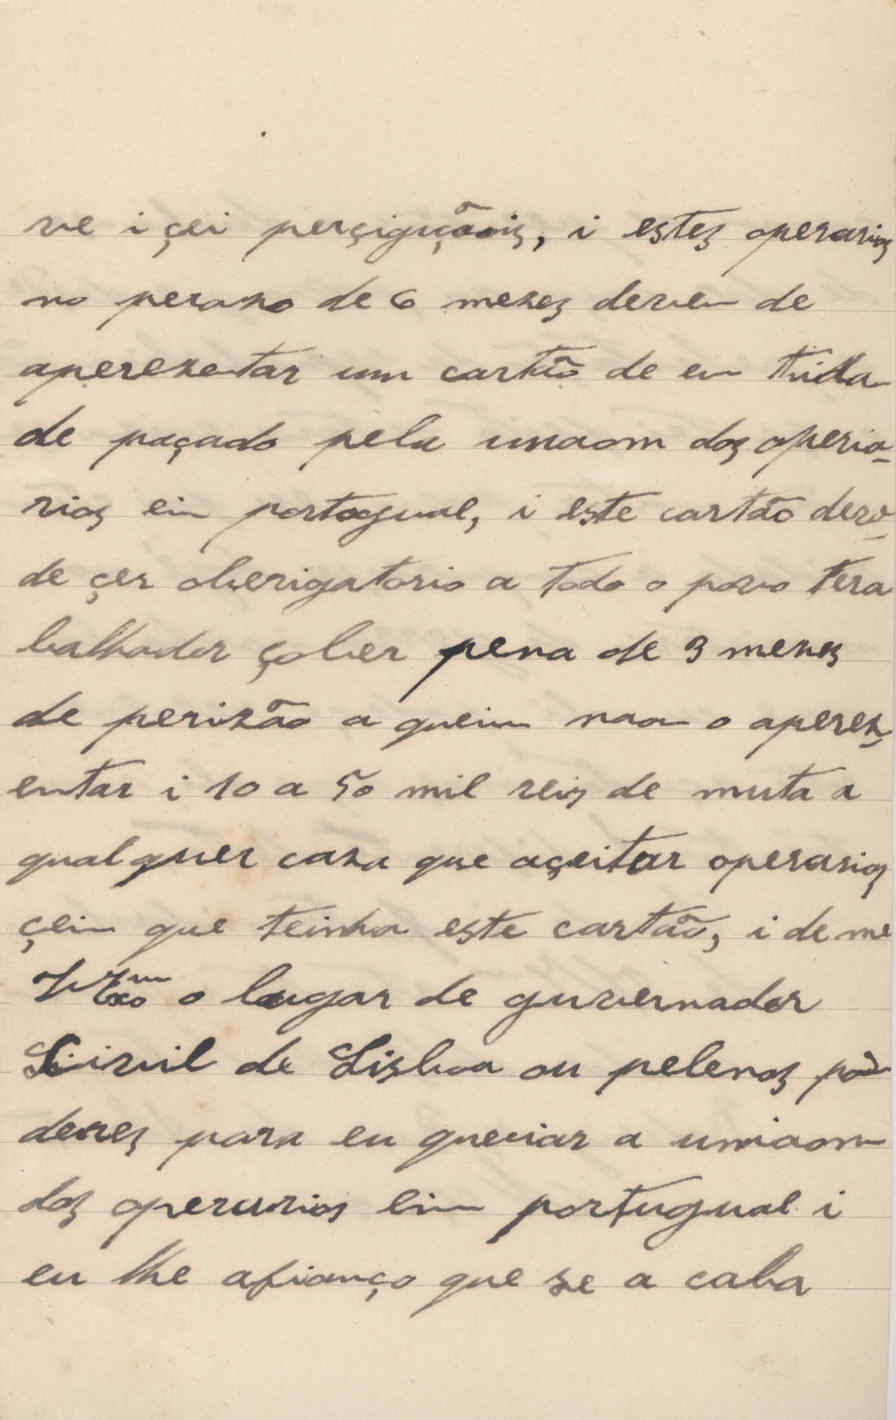 ve i çei perçiguçõois, i estes operarios
no perazo de 6 mezes devem de
aperezentar um cartão de em tida
de paçado pela unaom dos operia-
rios ein portogual, i este cartão deve-
de çer oberigatorio a todo o povo tera
balhador çober pena de 3 mezes
de perizão a queim naom o aperez-
entar i 10 a 50 mil reis de muta a
qualquer caza que açeitar operarios
çeim que teinha este cartão, i deme
o lugar de guvernador
Sivil de Lisboa ou pelenos po
deres para eu queriar a uniaom
dos operarios eim portugual i
eu lhe afianço que se a caba